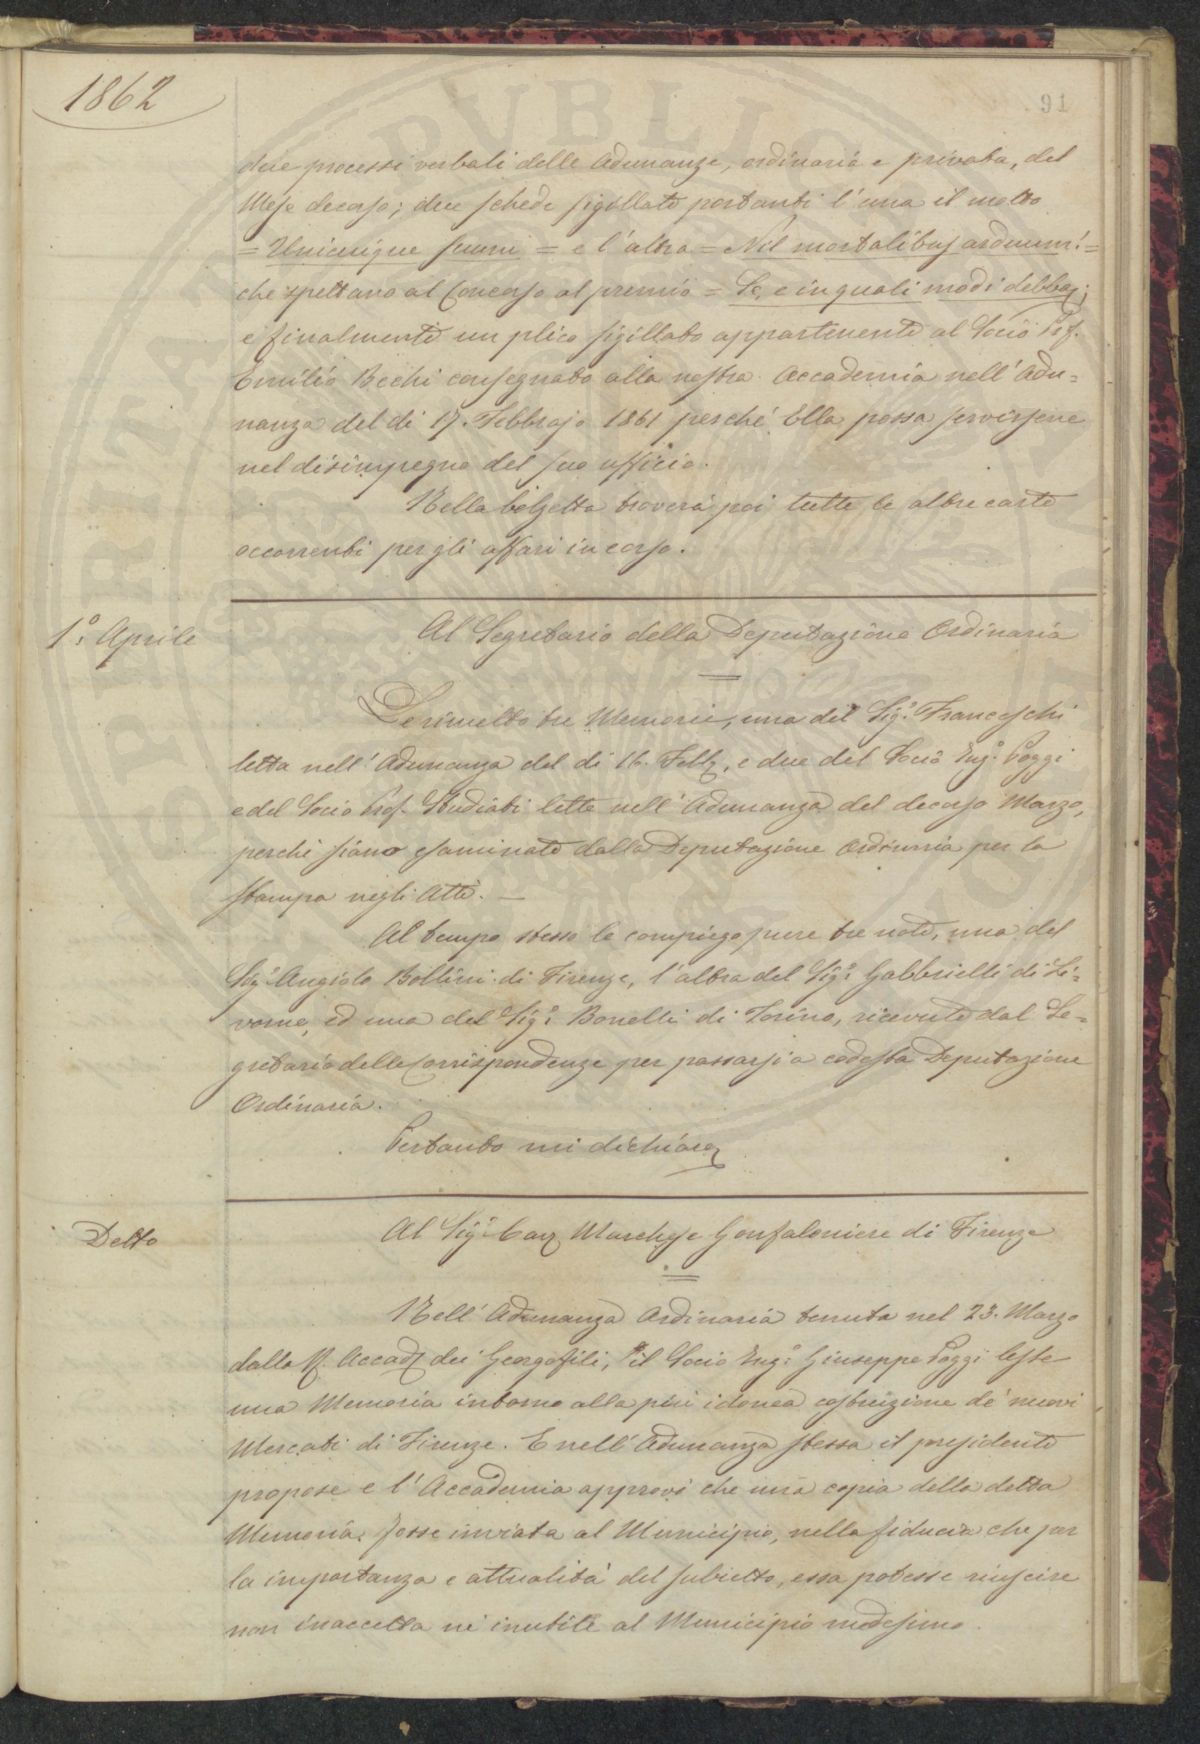 1862
91
due processi verbali delle Adunanze, ordinaria e privata, del
Mese decorso; due schede sigillate portanti l'una il motto
= Unicuique suum = e l'altra = Nil mortalibus arduum! =
che spettano al Concorso al premio = Se, e in quali modi debba;
e finalmente un plico sigillato appartenente al Socio Prof.
Emilio Bechi consegnato alla nostra Accademia nell'Adu=
nanza del dì 17. Febbrajo 1861 perché Ella possa servirsene
nel disimpegno del suo ufficio.
Nella bolgetta troverà poi tutte le altre carte
occorrenti per gli affari in corso.
1.° Aprile
Al Segretario della Deputazione Ordinaria
Le rimetto tre Memorie, una del Sig.r Franceschi
letta nell'Adunanza del dì 16. Febb., e due del Socio Ing.e Poggi
e del Socio Prof. Studiati lette nell'Adunanza del decorso Marzo,
perché siano esaminate dalla Deputazione Ordinaria per la
stampa negli Atti. —
Al tempo stesso le compiego pure tre note, una del
Sig.r Angiolo Bollini di Firenze, l'altra del Sig.r Gabbrielli di Li=
vorno, ed una del Sig.r Bonelli di Torino, ricevute dal Se=
gretario delle Corrispondenze per passarsi a codesta Deputazione
Ordinaria.
Pertanto mi dichiaro
Detto
Al Sig.r Cav. Marchese Gonfaloniere di Firenze
Nell'Adunanza Ordinaria tenuta nel 23. Marzo
dalla R. Accad. dei Georgofili, il Socio Ing.e Giuseppe Poggi lesse
una Memoria intorno alla più idonea costruizione de' nuovi
Mercati di Firenze. E nell'Adunanza stessa il presidente
propose e l'Accademia approvò che una copia della detta
Memoria fosse inviata al Municipio, nella fiducia che per
la importanza e attualità del subietto, essa potesse riuscire
non inaccetta né inutile al Municipio medesimo.